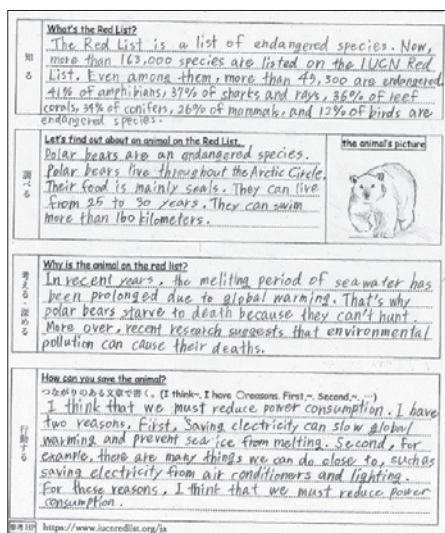 知る
What's the Red List?
The Red List is a list of endangered species. Now,
more than 163,000 species are listed on the IUCN Red
List. Even among them, more than 45,300 are endangered
41% of amphibians, 37% of sharks and rays, 36% of reef
corals, 34% of conifers, 26% of mammals, and 12% of birds are
endangered species.
調べる
Let's find out about an animal on the Red List.
the animal's picture
Polar bears are an endangered species.
Polar bears live throughout the Arctic Circle.
Their food is mainly seals. They can live
from 25 to 30 years. They can swim
more than 160 kilometers.
考える・深める
Why is the animal on the red list?
In recent years, the melting period of seawater has
been prolonged due to global warming. That's why
polar bears starve to death because they can't hunt.
More over, recent research suggests that environmental
pollution can cause their deaths.
行動する
How can you save the animal?
つながりのある文章で書く。(I think~. I have ○reasons. First,~. Second,~. …)
I think that we must reduce power consumption. I have
two reasons. First, Saving electricity can slow global
warming and prevent sea ice from melting. Second, for
example, there are many things we can do close to, such as
saving electricity from air conditioners and lighting.
For these reasons, I think that we must reduce power
consumption.
参考HP https://www.iucnredlist.org/ja